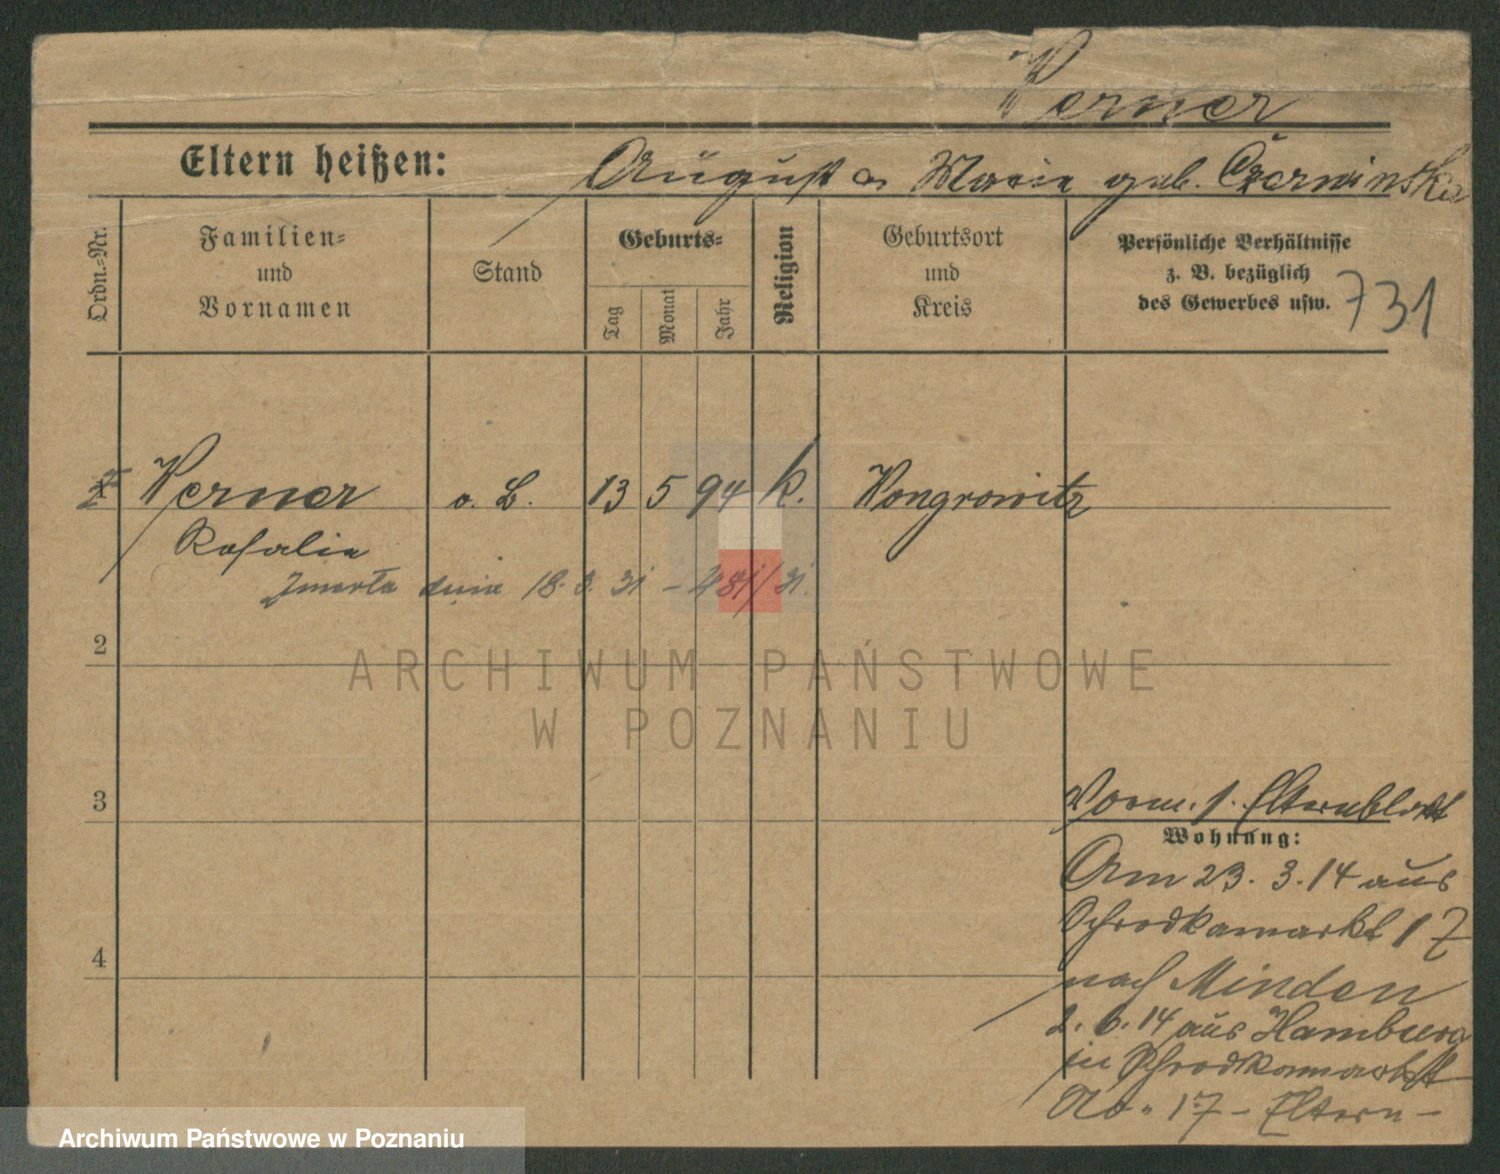 Werner
Eltern heißen: August u. Marie geb. Czerwinska
Ordn.-Nr.
Familien-
und
Vornamen
Stand
Geburts-
Tag
Monat
Jahr
Religion
Geburtsort
und
Kreis
Persönliche Verhältnisse
z. B. bezüglich
des Gewerbes usw.
731
1 Werner o. B. 13 5 94 k. Wongrowitz
Rosalie
Zmarła dnia 18. 3. 31 - 481/31.
2
ARCHIWUM PAŃSTWOWE
W POZNANIU
3
Vorm. s. Elternblatt
Wohnung:
Am 23. 3. 14 aus
Schrodkamarkt 17
4
nach Minden
2. 6. 14 aus Hamburg
in Schrodkamarkt
No. 17 - Eltern -
Archiwum Państwowe w Poznaniu